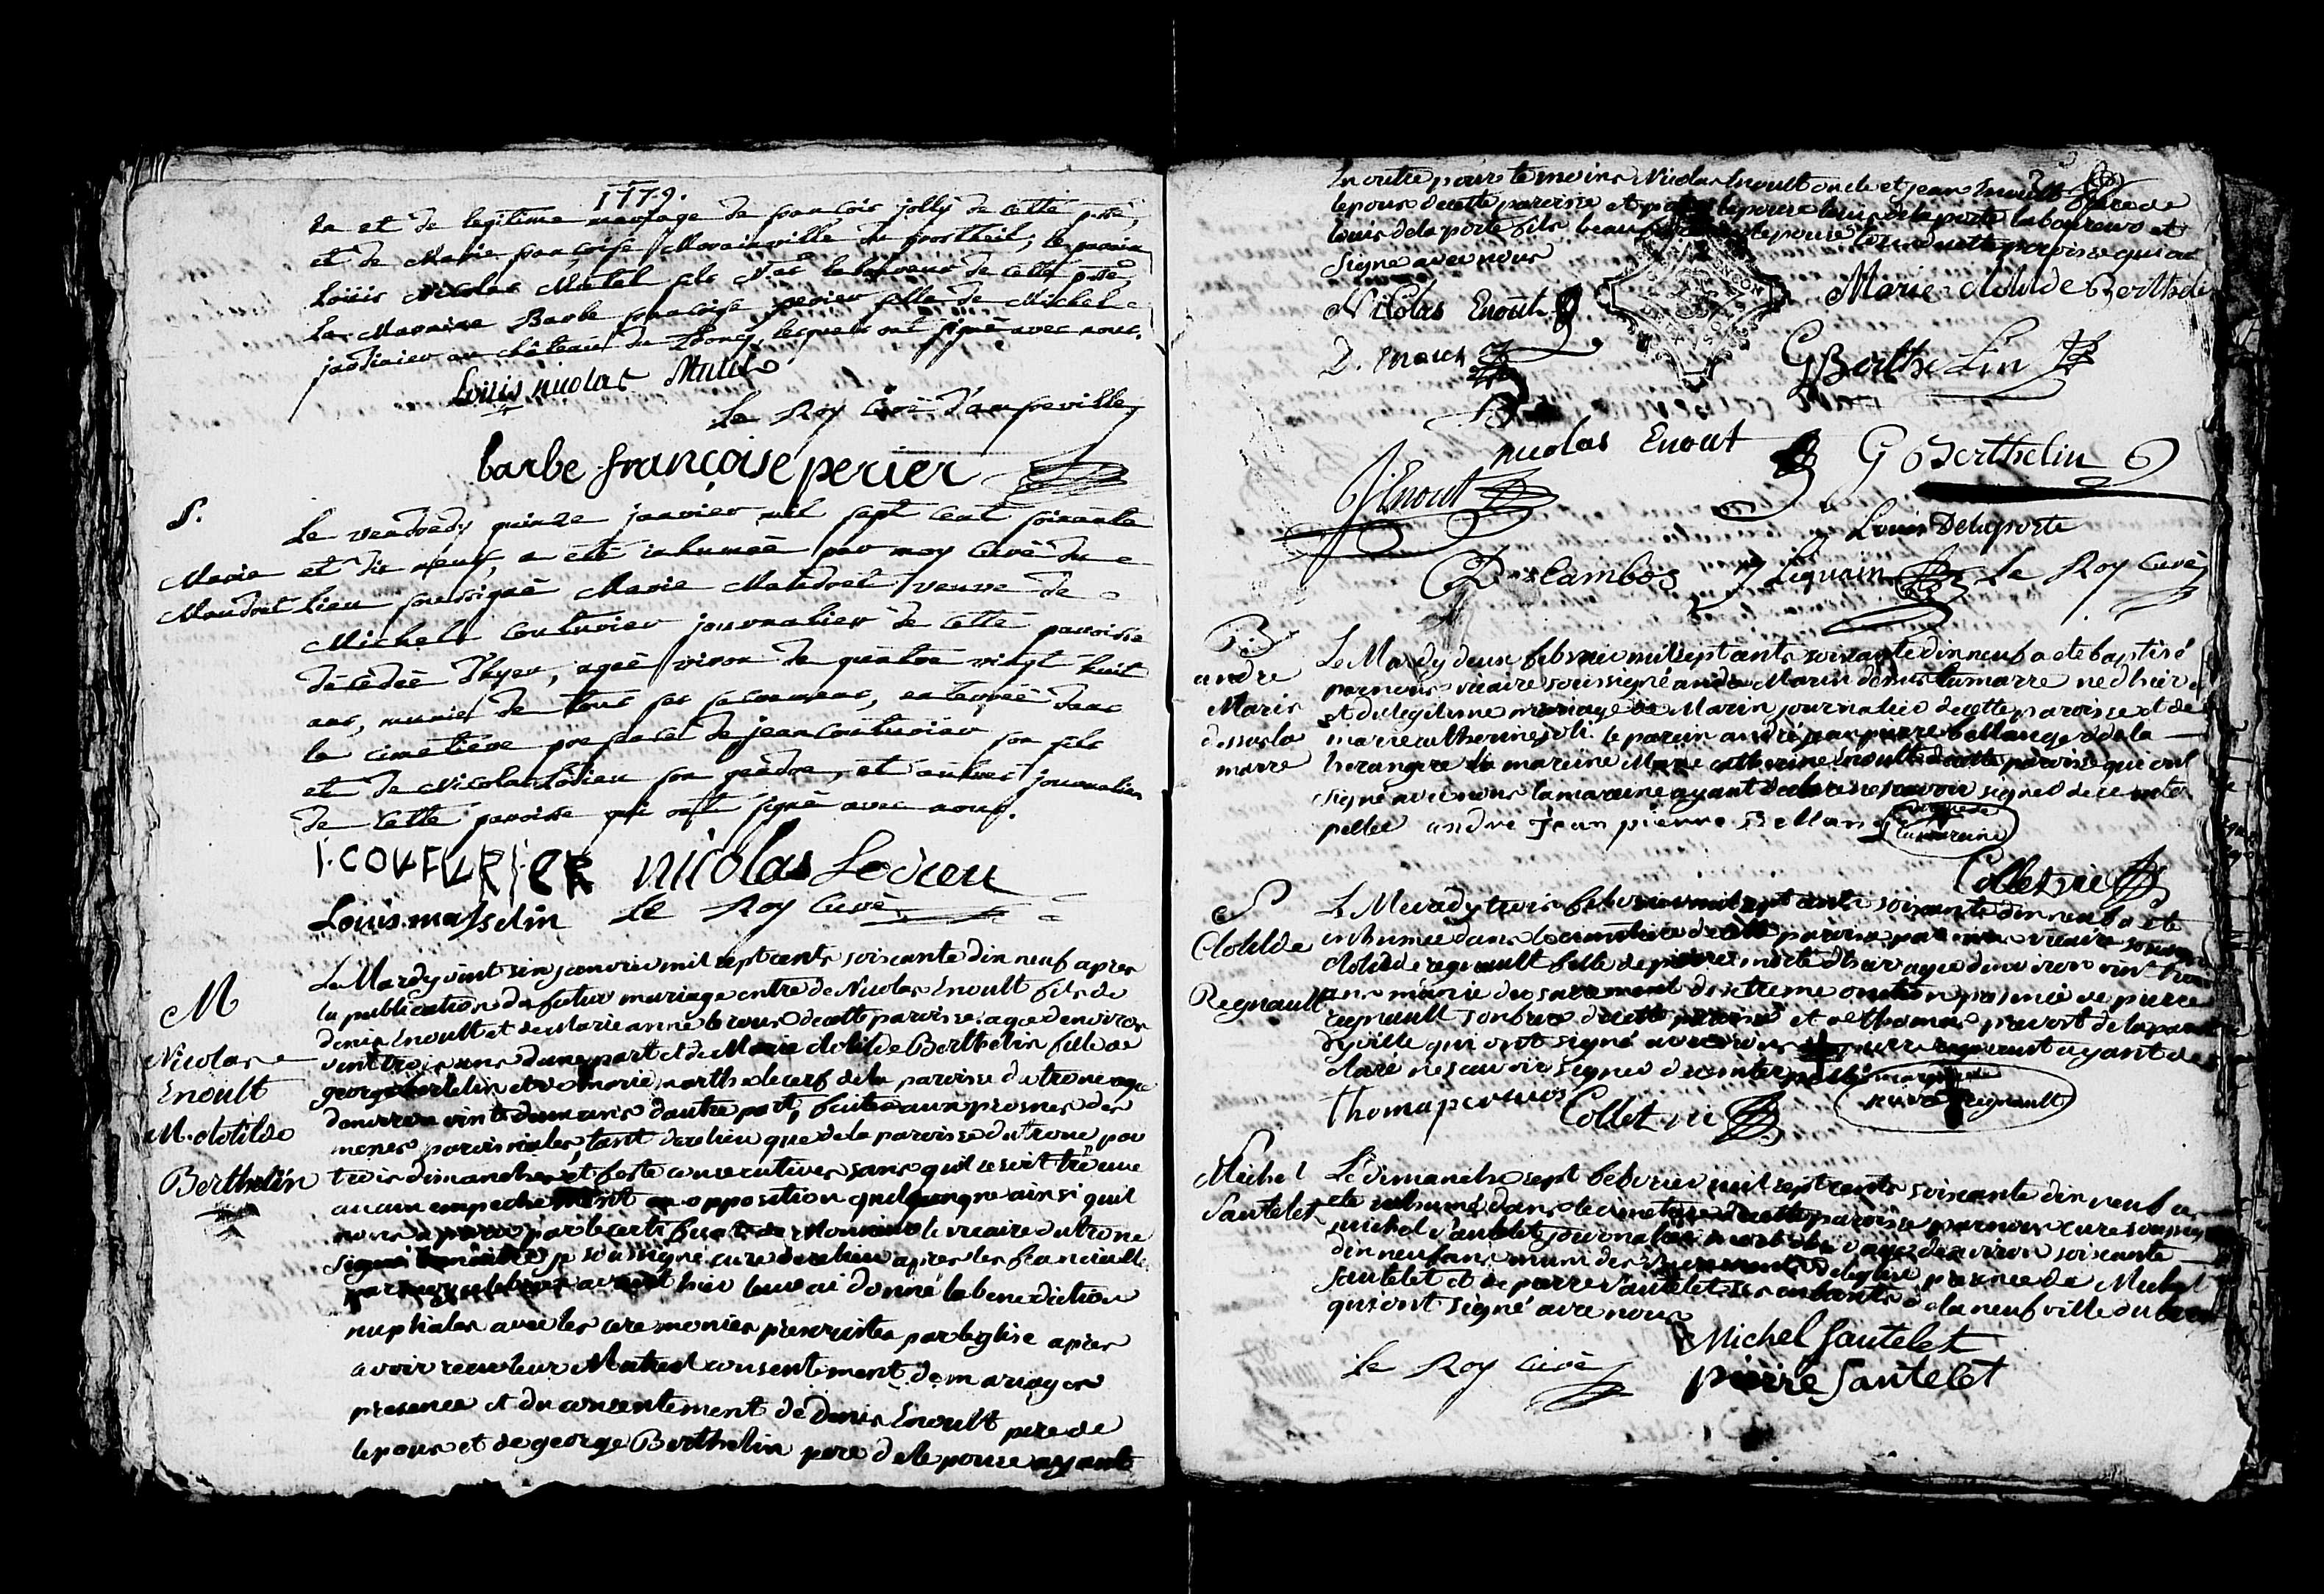 1779.
et de legitime mariage de francois jolly de cette psse,
et de Marie françoise Morainville du frostheil, le parain
Louis Nicolas Matel fils N.as laboureur de cette psse,
La Maraine Barbe francoise perier fille de Michel
jardinier au château du , lesquels ont signé avec nous.
Louis nicolas Matel
Le Roy Curé d'amfreville
barbe françoise perier
S.
Marie
Maudret
Le vendredy quinze janvier mil sept cent soixante
et dix neuf, a été inhumée par moy Curé du
lieu soussigné Marie Maudret veuve de
Michel Couturier journalier de cette paroisse
décédée d'hyer, agée viron de quatre vingt huit
ans, munie de tous ses sacremens, enterrée dans
le cimetiere presence de jean Couturier son fils
et de Nicolas Lodieu son gendre, et autres journaliers
de cette paroisse qui ont signé avec nous.
I. COUTURIER nicolas Lodieu
Louis masselin Le Roy Curé
M
Nicolas
Enoult
M. clotilde
Berthelin
Le Mardy vint sin janvier mil sept cents soixante din neuf apres
la publication du futur mariage entre de Nicolas Enoult fils de
denis Enoult et de Marie anne le roux de cette paroisse age denviron
vint trois ans dune part et de Marie clotilde Berthelin fille de
george bertelin et de marie marthe lecerf de la paroisse du trone age
denviron vinte deux ans dautre part, faite aux prosnes des
meses paroissiales, tant de ce lieu que de la paroisse du trone par
trois dimanches et feste consecutives sans quil ce soit treuve
aucun empechement ou opposition quelquonque ainsi quil
nous a paru par le certificat de Monsieur le vicaire du trone
signé je soussigné cure de ce lieu apres les fiancialles
par moy celebrees avant hier leur ai donné la benediction
nuptiales avec les ceremonies prescrites par leglise apres
avoir recu leur Mutuel consentement de mariage en
presence et du consentement de denis Enoult pere de
lepoux et de george Berthelin pere de lepouse ayant
En outre pour temoins Nicolas Enoult oncle et jean Enoult frere de
lepoux de cette paroisse et pour lepouse louis de la porte laboureur et
louis de la porte fils beau lepouse tous de cette paroisse qui ont
Signe avec nous
Nicolas Enoult Marie clotilde Berthelin
D. Enoult G Berthelin
nicolas Enout G Berthelin
J. Enoult Louis Delaporte
Descambos J Lignain Le Roy Curé
B
andre
Marin
dessus la
marre
Le Mardy deux febvrier mil sept cents soixante din neuf a ete baptisé
par nous vicaire soussigné andre Marin dessus la marre né d hier
et du legitime mariage de Marin journalier de cette paroisse et de
marie catherine joli. le parein andré jean pierre bellanger de la
herangere la mareine Marie catherine Enoult de cette paroisse que ont
signé avec nous la mareine ayant declare ne scavoir signer de ce inter
pellee andre jean pierre Bellang marque de
la mareine
Collet vic
S
Clotilde
Regnault
Le Mercredy trois febvrier mil sept cents soixante din neuf a ete
inhumée dans le cimetiere de cette paroisse par nous vicaire soussigné
clotilde regnault fille de pierre morte d hier agee denviron vint trois
ans munie du sacrement d extreme onction presence de pierre
regnault son frere de cette paroisse et de thomas prevost de la paroisse
dyville qui ont signé avec nous pierre regnault ayant de
claré ne scavoir signer de ce interpellé marque de
pierre Regnault
thomas prevost Collet vic
S
Michel
Sautelet
Le dimanche sept febvrier mil sept cents soixante din neuf a
ete inhumé dans le cimetiere de cette paroisse par nous cure soussigné
michel sautelet journalier mort d hier agé denviron soixante
din neuf ans muni des sacrements de leglise presence de Michel
sautelet et de pierre sautelet ses enfants de la neufville du bosc
qui ont signé avec nous
Michel Sautelet
Le Roy Curé pierre Sautelet